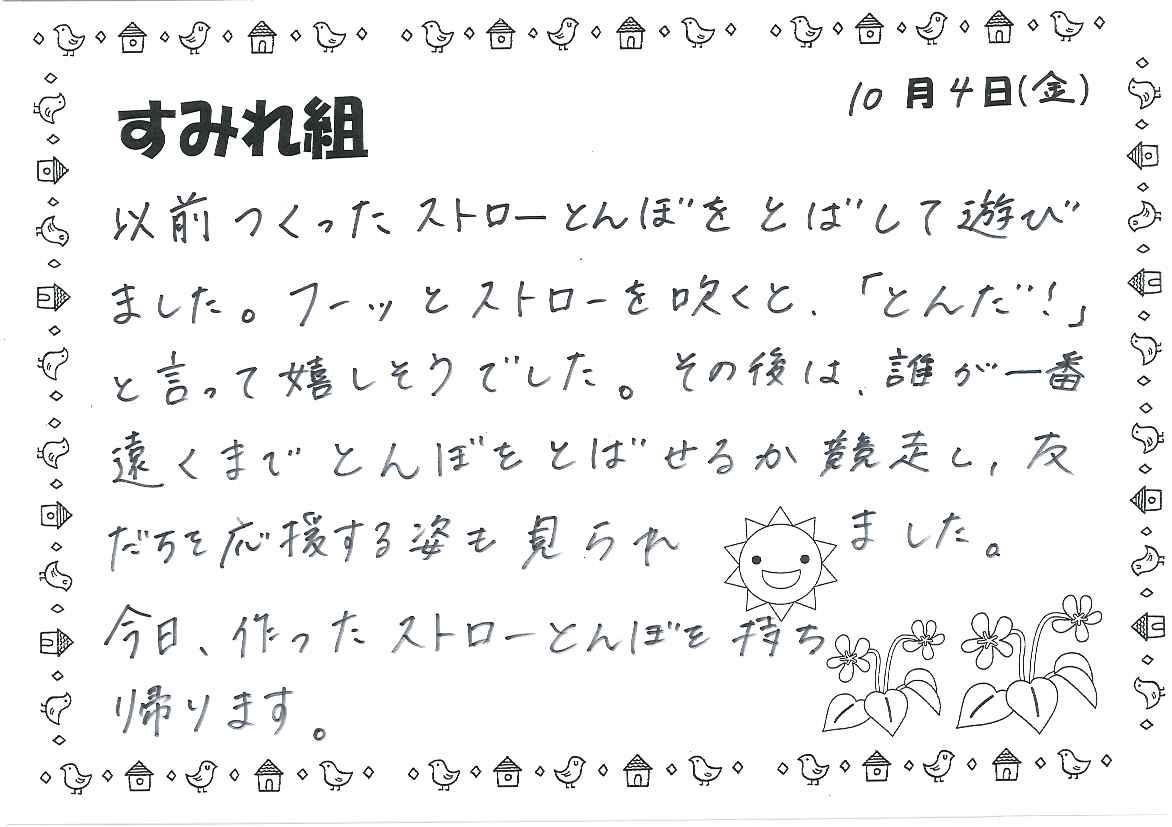 10月4日(金)
すみれ組
以前つくったストローとんぼをとばして遊び
ました。フーッとストローを吹くと、「とんだ!」
と言って嬉しそうでした。その後は、誰が一番
遠くまでとんぼをとばせるか競走し、友
だちを応援する姿も見られました。
今日、作ったストローとんぼを持ち
帰ります。